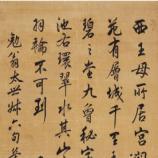 西王母所居宮
苑有層城千里
碧之堂九曾秘宇
池右環翠水其山
羽輪不可到
勉翁太世妹六旬